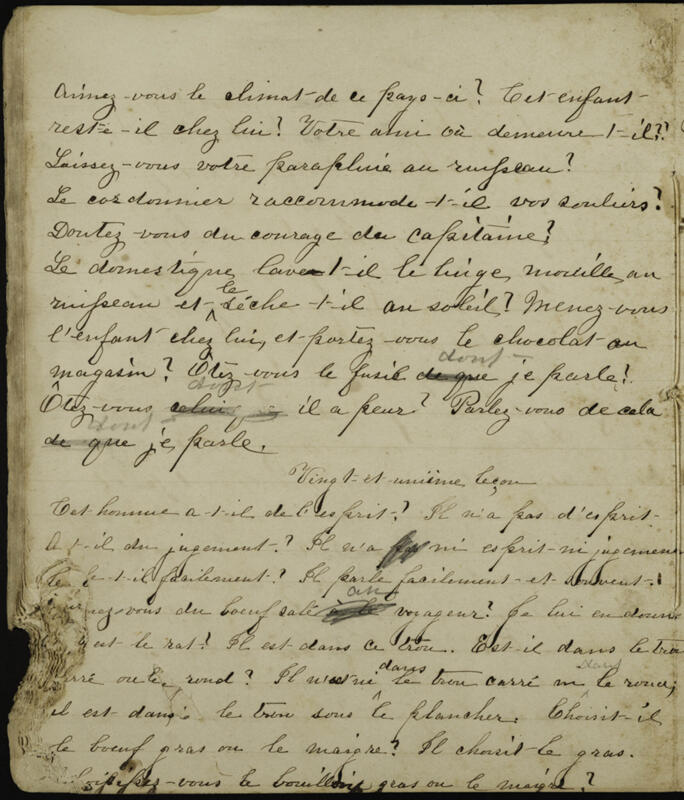 Aimez-vous le climat de ce pays-ci? Cet enfant
reste-il chez lui? Votre ami où demeure-t-il??
Laissez-vous votre parapluie au ruisseau?
Le cordonnier raccommode-t-il vos souliers?
Doutez-vous du courage du capitaine?
Le domestique lave-t-il le linge mouillé au
le
ruisseau et sèche-t-il au soleil? Menez-vous
l'enfant chez lui, et portez-vous le chocolat au
dont
magasin? Ôtez-vous le fusil de que je parle?
dont
Ôtez-vous celui il a peur? Parlez-vous de cela
dont
de que je parle.
Vingt-et-unième leçon
Cet homme a-t-il de l'esprit? Il n'a pas d'esprit.
A-t-il du jugement? Il n'a ni esprit ni jugemen
le-t-il facilement? Il parle facilement et souvent.
au
nez-vous du boeuf salé voyageur? Je lui en donn
est le rat? Il est dans ce trou. Est-il dans le trou
dans dans
arré ou le rond? Il n'est ni le trou carré ni le rond;
il est dans le trou sous le plancher. Choisit-il
le boeuf gras ou le maigre? Il choisit le gras.
hoisissez-vous le bouillon gras ou le maigre?